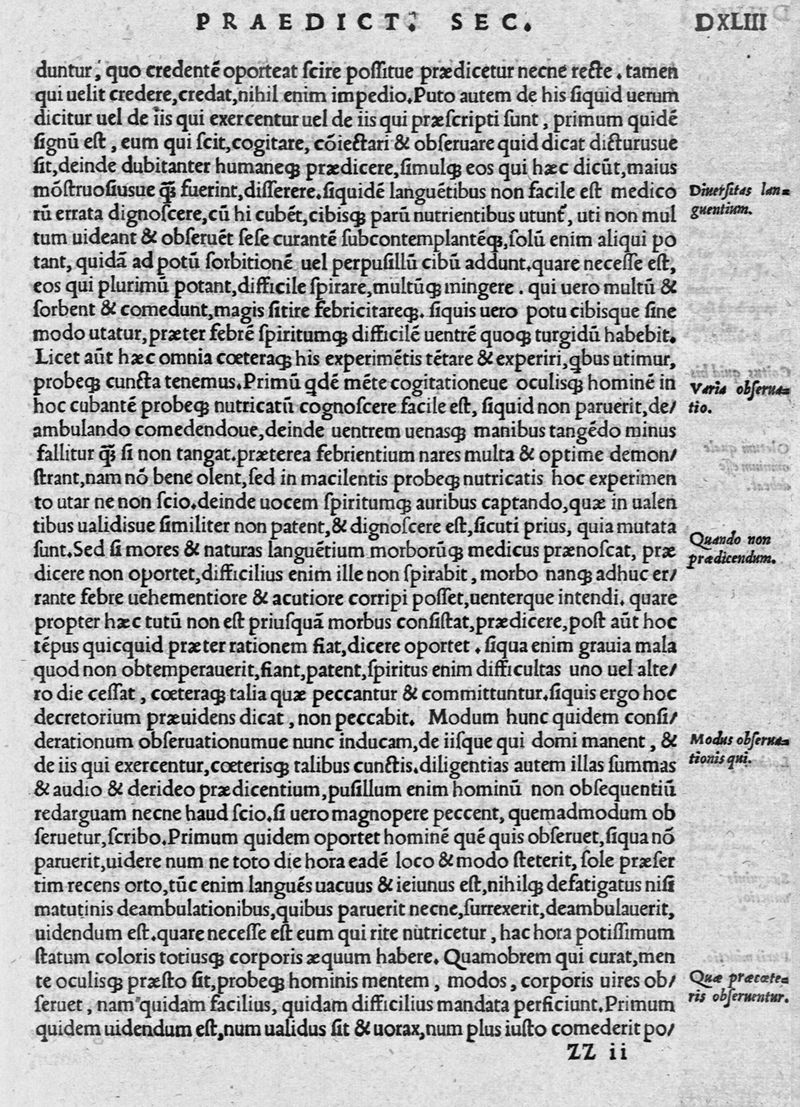 PRAEDICT. SEC. DXLIII
duntur, quo credentē oporteat ſcire poſſitue prædicetur necne recte. tamen
qui uelit credere,credat,nihil enim impedio.Puto autem de his ſiquid uerum
dicitur uel de iis qui exercentur uel de iis qui præſcripti ſunt, primum quidē
ſignū eſt, eum qui ſcit,cogitare, cōiectari & obſeruare quid dicat dicturusue
ſit,deinde dubitanter humaneq; prædicere,ſimulq; eos qui hæc dicūt,maius
mōſtruoſiusue q̄ꝫ fuerint,diſſerere.ſiquidē languētibus non facile eſt medico
rū errata dignoſcere,cū hi cubēt,cibisq; parū nutrientibus utunt᷑, uti non mul
tum uideant & obſeruēt ſeſe curantē ſubcontemplantēq;,ſolū enim aliqui po
tant, quidā ad potū ſorbitionē uel perpuſillū cibū addunt.quare neceſſe eſt,
eos qui plurimū potant,difficile ſpirare,multūq; mingere. qui uero multū &
ſorbent & comedunt,magis ſitire febricitareq;. ſiquis uero potu cibisque ſine
modo utatur,præter febrē ſpiritumq; difficilē uentrē quoq; turgidū habebit.
Licet aūt hæc omnia cœteraq; his experimētis tētare & experiri,qbus utimur,
probeq; cuncta tenemus.Primū qdē mēte cogitationeue oculisq; hominē in
hoc cubantē probeq; nutricatū cognoſcere facile eſt, ſiquid non paruerit,de/
ambulando comedendoue,deinde uentrem uenasq; manibus tangēdo minus
fallitur q̄ꝫ ſi non tangat.præterea febrientium nares multa & optime demon/
ſtrant,nam nō bene olent,ſed in macilentis probeq; nutricatis hoc experimen
to utar ne non ſcio.deinde uocem ſpiritumq; auribus captando,quæ in ualen
tibus ualidisue ſimiliter non patent,& dignoſcere eſt,ſicuti prius, quia mutata
ſunt.Sed ſi mores & naturas languētium morborūq; medicus prænoſcat, præ
dicere non oportet,difficilius enim ille non ſpirabit, morbo nanq; adhuc er/
rante febre uehementiore & acutiore corripi poſſet,uenterque intendi. quare
propter hæc tutū non eſt priuſquā morbus conſiſtat,prædicere,poſt aūt hoc
tēpus quicquid præter rationem fiat,dicere oportet. ſiqua enim grauia mala
quod non obtemperauerit,fiant,patent,ſpiritus enim difficultas uno uel alte/
ro die ceſſat, cœteraq; talia quæ peccantur & committuntur.ſiquis ergo hoc
decretorium præuidens dicat, non peccabit. Modum hunc quidem conſi/
derationum obſeruationumue nunc inducam,de iiſque qui domi manent, &
de iis qui exercentur,cœterisq; talibus cunctis.diligentias autem illas ſummas
& audio & derideo prædicentium,puſillum enim hominū non obſequentiū
redarguam necne haud ſcio.ſi uero magnopere peccent, quemadmodum ob
ſeruetur,ſcribo.Primum quidem oportet hominē quē quis obſeruet,ſiqua nō
paruerit,uidere num ne toto die hora eadē loco & modo ſteterit, ſole præſer
tim recens orto,tūc enim languēs uacuus & ieiunus eſt,nihilq; defatigatus niſi
matutinis deambulationibus,quibus paruerit necne,ſurrexerit,deambulauerit,
uidendum eſt.quare neceſſe eſt eum qui rite nutricetur, hac hora potiſſimum
ſtatum coloris totiusq; corporis æquum habere. Quamobrem qui curat,men
te oculisq; præſto ſit,probeq; hominis mentem, modos, corporis uires ob/
ſeruet, nam quidam facilius, quidam difficilius mandata perficiunt.Primum
quidem uidendum eſt,num ualidus ſit & uorax,num plus iuſto comederit po/
ZZ ii
Diuerſitas lan=
guentium.
Varia obſerua=
tio.
Quando non
prædicendum.
Modus obſerua=
tionis qui.
Quæ præcæte=
ris obſeruentur.